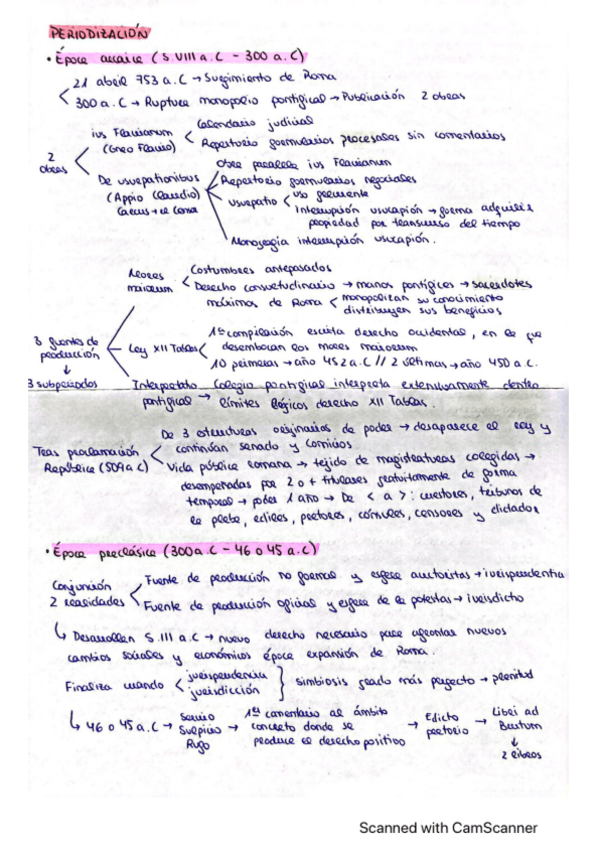 PERIODIZACIÓN
• Época arcaica (S. VIII a.C - 300 a.C)
21 abril 753 a.C → Surgimiento de Roma
300 a.C → Ruptura monopolio pontifical → Publicación 2 obras
2 obras
ius Flavianum (Gneo Flavio)
Calendario judicial
Repertorio formularios procesales sin comentarios
De usurpationibus (Appio Claudio)
Obra paralela ius Flavianum
Repertorio formularios negociales
usurpatio
uso frecuente
Interrupción usucapión → forma adquirir
propiedad por transcurso del tiempo
Monografía interrupción usucapión.
3 fuentes de producción
↓
3 subperiodos
Mores maiorum
Costumbres antepasados
Derecho consuetudinario → manos pontífices → sacerdotes
máximos de Roma
monopolizan su conocimiento
distribuyen sus beneficios
Ley XII Tablas
1ª compilación escrita derecho occidental, en la que
desembocan los mores maiorum
10 primeras → año 452 a.C // 2 últimas → año 450 a.C.
Interpretatio pontifical → Colegio pontifical interpreta extensivamente dentro
límites lógicos derecho XII Tablas.
Tras proclamación República (509 a.C)
De 3 estructuras originarias de poder → desaparece el rey y
continúan senado y comicios.
Vida pública romana → tejido de magistraturas colegiadas →
desempeñadas por 2 o + titulares gratuitamente de forma
temporal → poder 1 año → De < a > : cuestores, tribunos de
la plebe, ediles, pretores, cónsules, censores y dictador
• Época preclásica (300 a.C - 46 o 45 a.C)
Conjunción 2 realidades
Fuente de producción no formal y esfera auctoritas → iurisprudentia
Fuente de producción oficial y esfera de la potestas → iurisdictio
↳ Desarrollan S. III a.C → nuevo derecho necesario para afrontar nuevos
cambios sociales y económicos época expansión de Roma.
Finaliza cuando
jurisprudencia
jurisdicción
simbiosis grado más perfecto → plenitud
↳ 46 o 45 a.C → Servio Sulpicio Rufo → 1er comentario al ámbito
concreto donde se
produce el derecho positivo
→ Edicto pretorio → Libri ad Brutum
↓
2 libros
Scanned with CamScanner